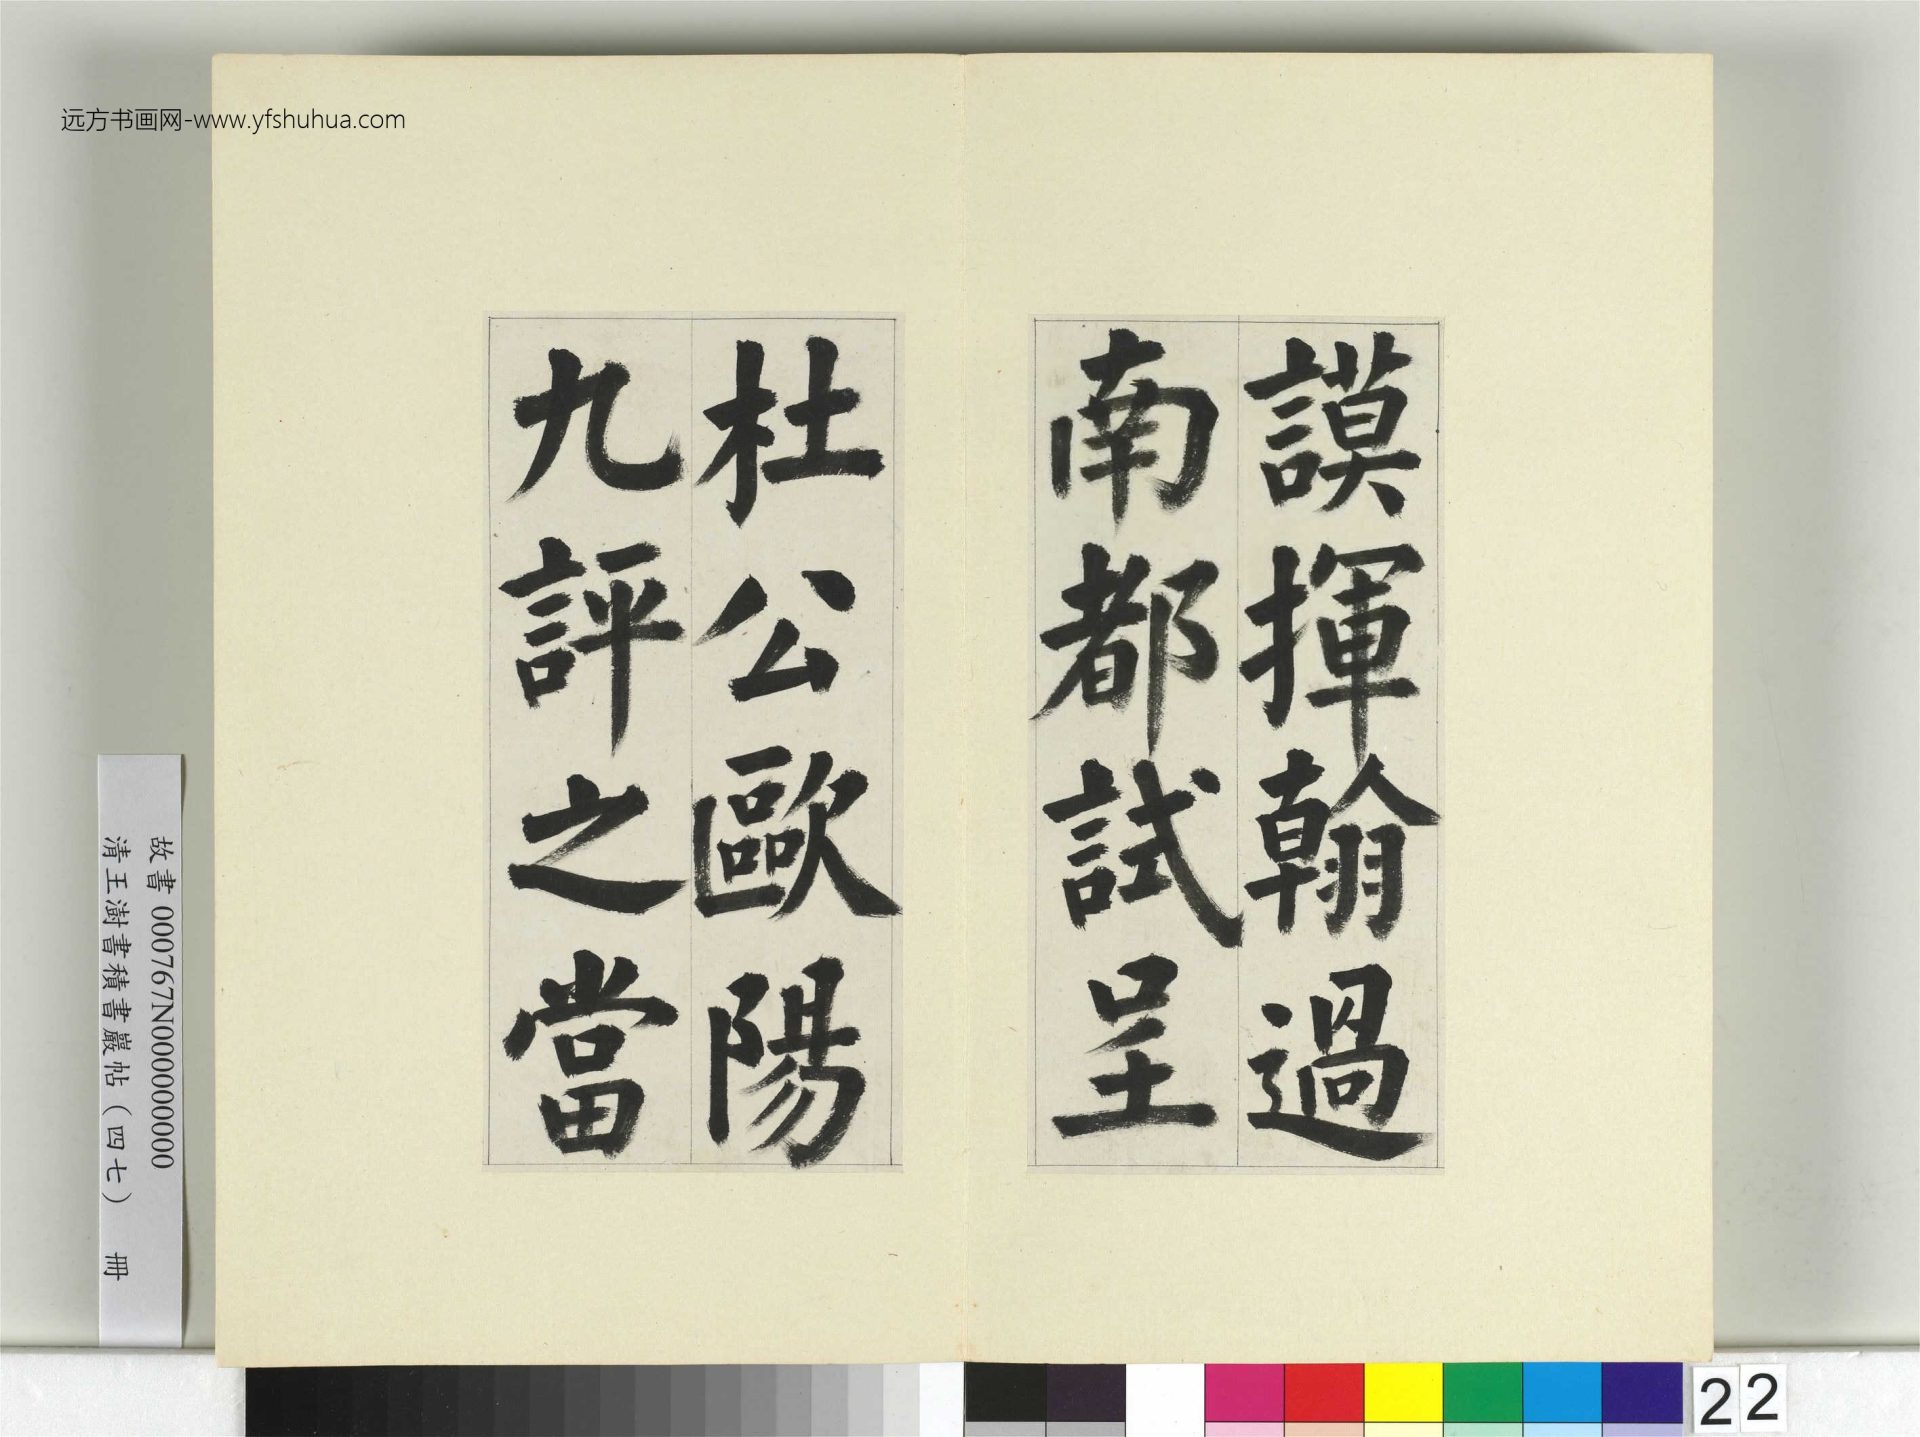 远方书画网-www.yfshuhua.com
謨揮翰過
南都試呈
杜公歐陽
九評之當
故書 000767N000000000
清王澍書積書巖帖(四七) 冊
22